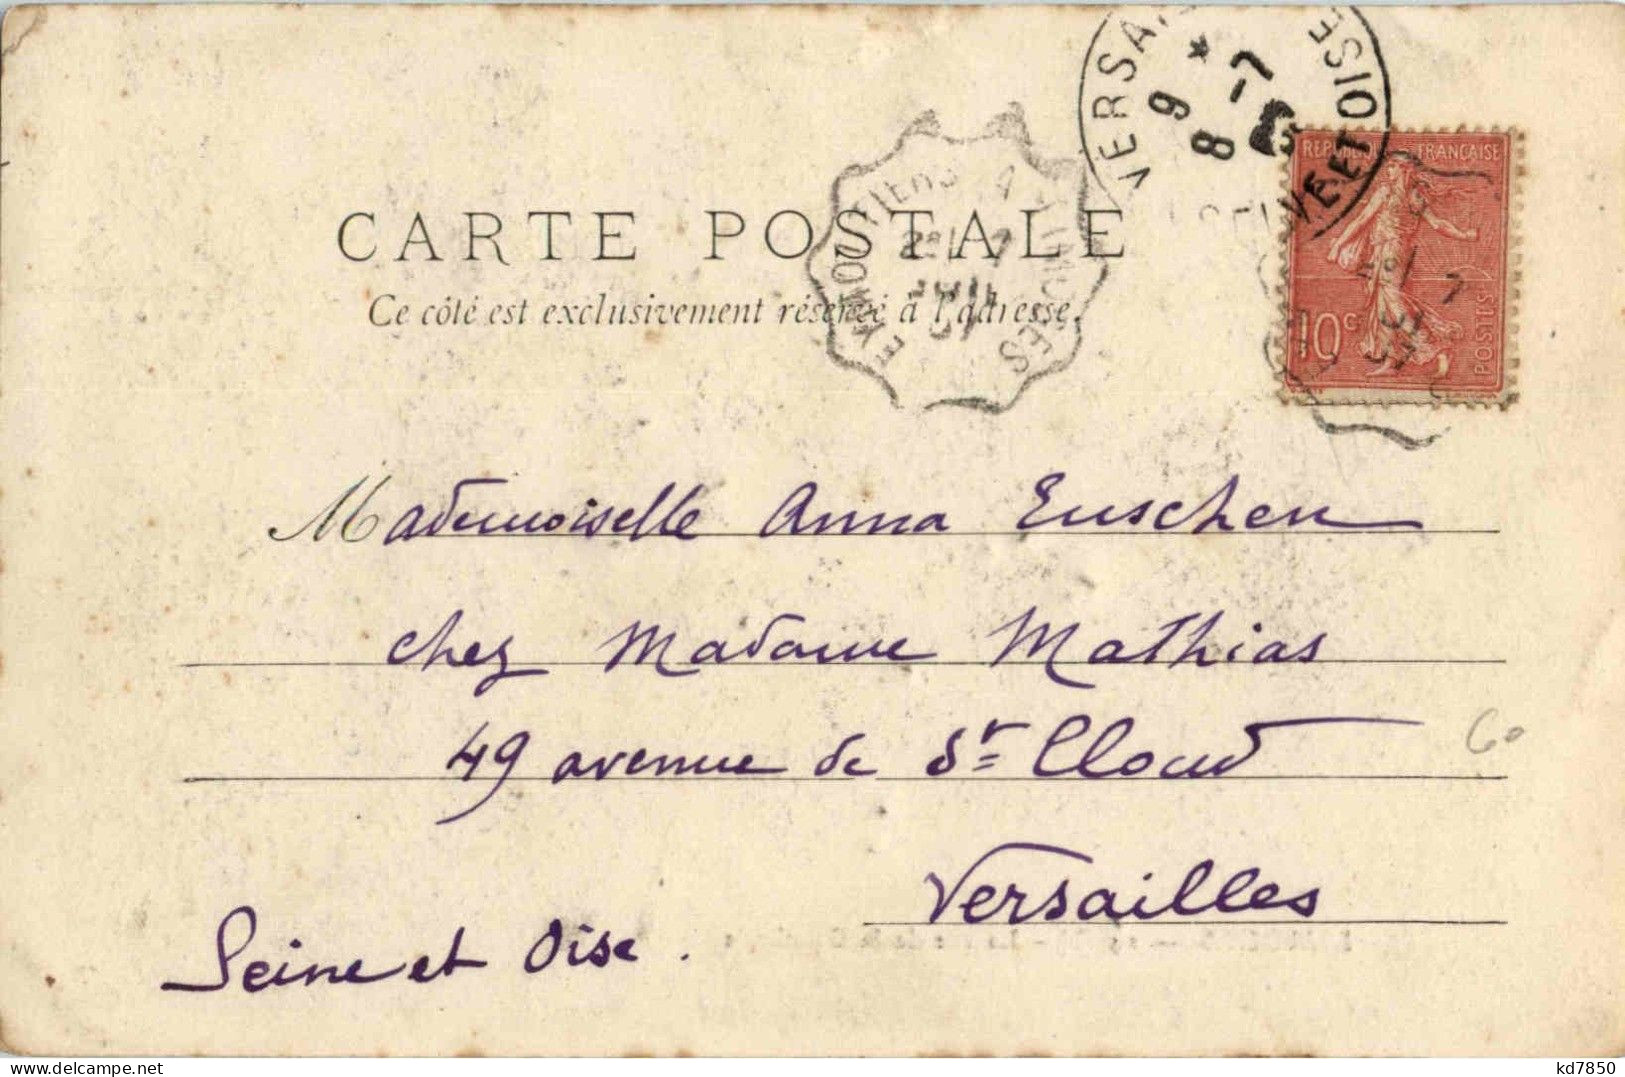 CARTE POSTALE
Ce côté est exclusivement réservé à l'adresse.
EYMOUTIERS A LIMOGES
7
VERSAILLES
9 *
8 -7
SEINE ET OISE
REPUBLIQUE FRANÇAISE
10 c
POSTES
Mademoiselle Anna Euschen
chez Madame Mathias
49 avenue de St Cloud
60
Versailles
Seine et Oise.
kd7850